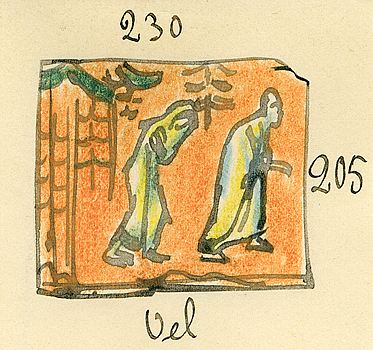 230
205
Vel